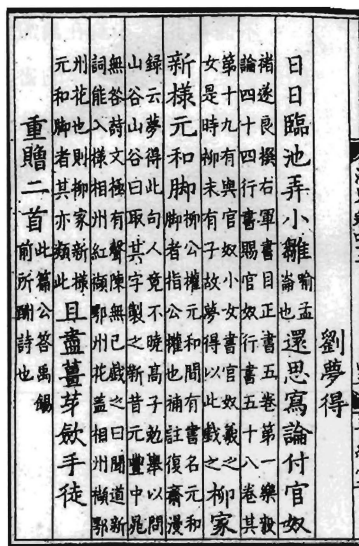 劉夢得
日日臨池弄小雛喻孟崙也還思寫論付官奴
褚遂良撰右軍書目正書五卷第一樂毅
論四十四行書賜官奴行書五十八卷其
第十九有與官奴小女書官奴羲之
女是時柳未有子故夢得以此戲之柳家
新樣元和脚柳公權元和間有書名元和
脚者指公權也補註復齋漫
錄云夢得此句人竟不曉高子勉舉以問
山谷山谷曰取其字製之新昔元豐中晁
無咎詩文極有聲陳無已戲之曰聞道新
詞能入樣相州紅纈鄂州花蓋相州纈鄂
州花也則柳家新樣
元和脚者其亦類此且盡薑芽歛手徒
重贈二首此篇公答禹錫
前所酬詩也